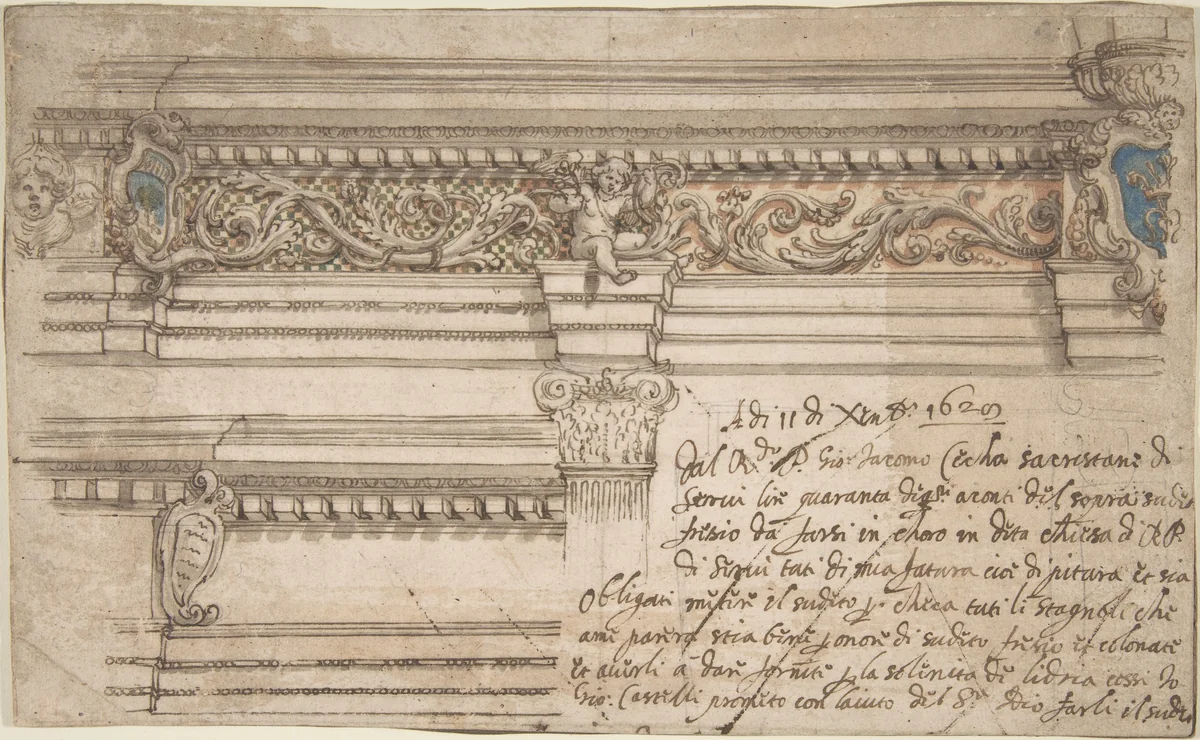 A di 11 di Xem 1628
Dal R.do P. Gio: Iacomo Cecha sacrestano di
Servi lire quaranta aconti dil sopra
fresio da farsi in choro in dita chiesa di R P
di Servi tuti di mia fatura cioe di pitura et sia
Obligati metere il sudito tuti li stagnoli che
ame parera stia bene onore di sudito fresio et colonate
et averli a dare la solenita di cossi Io
Gio: Castelli prometo con laiuto del Dio farli il